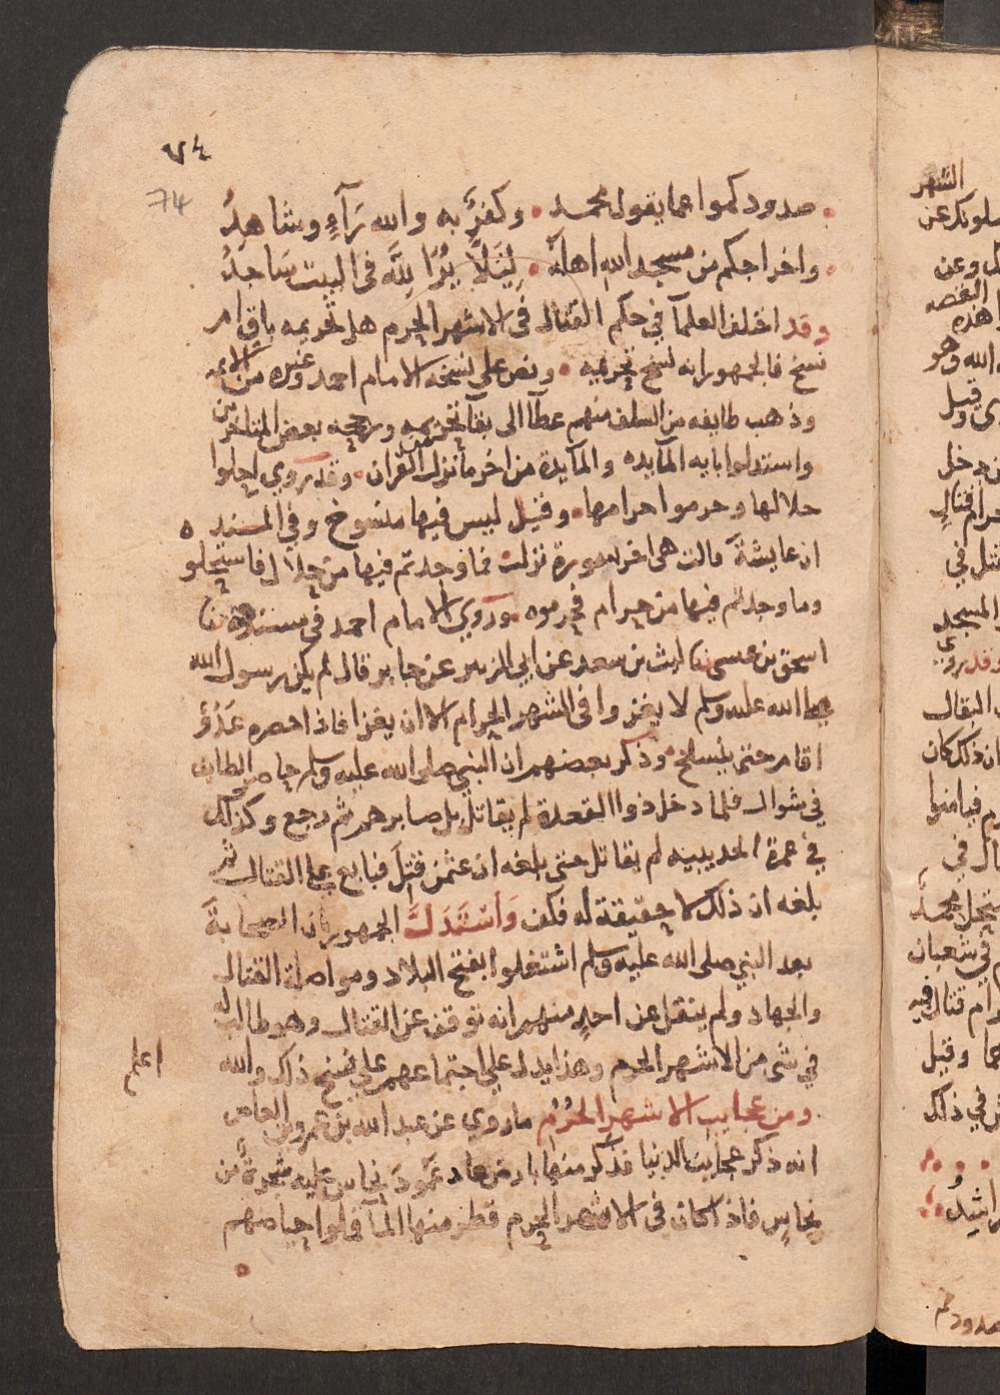 ٧٤
74
صدودكموا عما يقول محمد ۰ وكفرٌ به والله رَآءٍ وشاهدُ
واخراجكم من مسجد الله اهله ۰ لِئَلَّا يُرَا لِلَّه في البيت سَاجدُ
وقد اختلف العلمآ في حكم القتال في الاشهر الحرم هل تحريمه باقٍ ام
نسخ فالجمهور انه نسخ تحريمه ۰ ونص على نسخه الامام احمد وغيره من الايمه
وذهب طايفه من السلف منهم عطآ الى بقآ تحريمه ورجحه بعض المتاخرين
واستدلوا بايه المآيده والمآيدة من اخر ما نزل من القران ۰ وقد روي احلوا
حلالها وحرموا حرامها ۰ وقيل ليس فيها منسوخ وفي المسند ه
ان عايشة قالت هى اخر سورة نزلت فما وجدتم فيها من حلال فاستحلو
وما وجدتم فيها من حرام فحرموه ۰ وروي الامام احمد في مسنده ثنا
اسحق بن عيسى ثنا ليث بن سعد عن ابي الزبير عن جابر قال لم يكن رسول الله
صلى الله عليه وسلم لا يغزوا في الشهر الحرام الا ان يغزا فاذا احصره عَدُوٌ
اقام حتى ينسلخ ۰ وذكر بعضهم ان النبي صلى الله عليه وسلم حاصر الطايف
في شوال فلما دخل ذوا القعدة لم يقاتل بل صابرهم ثم رجع وكذلك
في عمرة الحديبيه لم يقاتل حتى بلغه ان عثمن قُتِلَ فبايع على القتال ثم
بلغه ان ذلك لا حقيقة له فكف وَاسْتَدَلَّ الجمهور بان الصحابة
بعد النبي صلى الله عليه وسلم اشتغلوا بفتح البلاد ومواصلة القتال
والجهاد ولم ينقل عن احدٍ منهم انه توقف عن القتال وهو طالب له
في شى من الاشهر الحرم وهذا يدل على اجتماعهم على نسخ ذلك والله
اعلم
ومن عجايب الاشهر الحُرُم ما روي عن عبد الله بن عمرو بن العاص
انه ذكر عجايب الدنيا فذكر منها بارض عاد عَمُودَ نحاس عليه شجرةٌ من
نحاسٍ فاذا كان في الاشهر الحرم قطر منها المآ فملوا حياضهم